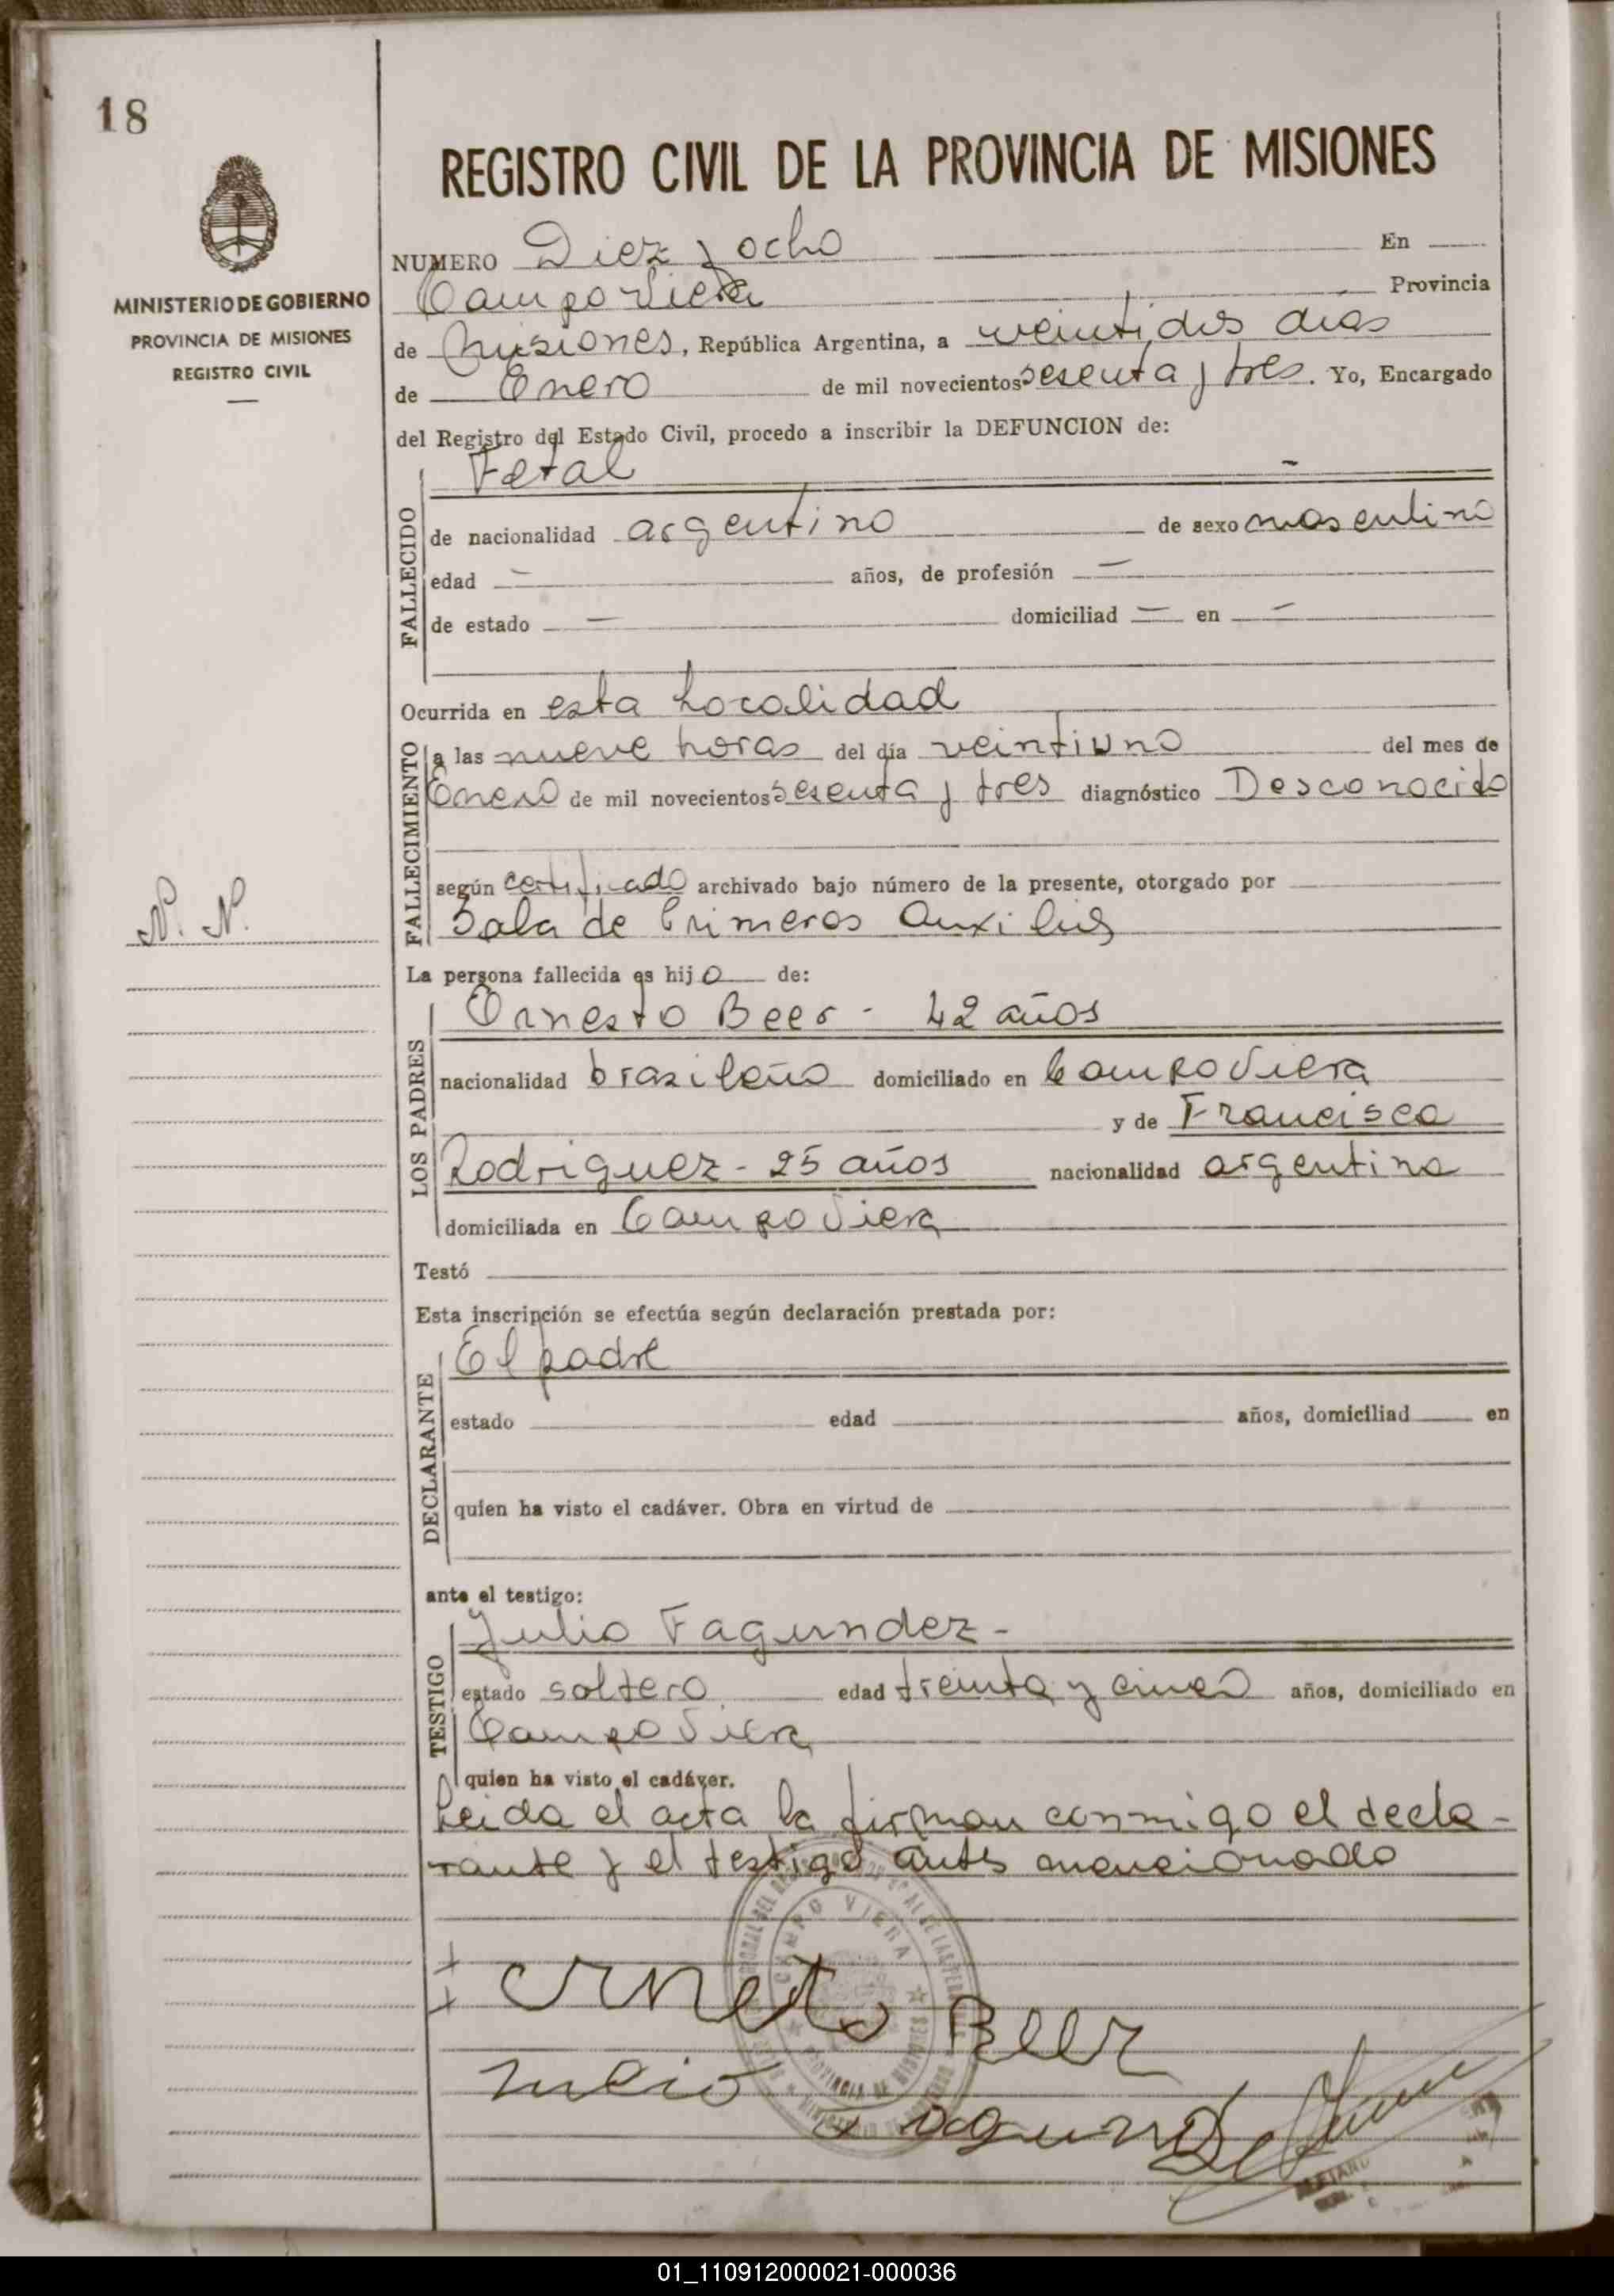 18
MINISTERIO DE GOBIERNO
PROVINCIA DE MISIONES
REGISTRO CIVIL
REGISTRO CIVIL DE LA PROVINCIA DE MISIONES
NUMERO Diez y ocho En
Campo Viera Provincia
de Misiones, República Argentina, a veintidos dias
de Enero de mil novecientos sesenta y tres. Yo, Encargado
del Registro del Estado Civil, procedo a inscribir la DEFUNCION de:
FALLECIDO
Fetal -
de nacionalidad argentino de sexo masculino
edad - años, de profesión -
de estado - domiciliad - en -
Ocurrida en esta Localidad
FALLECIMIENTO
a las nueve horas del día veintiuno del mes de
Enero de mil novecientos sesenta y tres diagnóstico Desconocido
según certificado archivado bajo número de la presente, otorgado por
Sala de Primeros Auxilios
N. N.
La persona fallecida es hijo de:
LOS PADRES
Ernesto Beer - 42 años
nacionalidad brasileño domiciliado en Campo Viera
y de Francisca
Rodriguez - 25 años nacionalidad argentina
domiciliada en Campo Viera
Testó
Esta inscripción se efectúa según declaración prestada por:
DECLARANTE
El padre
estado edad años, domiciliad en
quien ha visto el cadáver. Obra en virtud de
ante el testigo:
TESTIGO
Julio Fagundez -
estado soltero edad treinta y cinco años, domiciliado en
Campo Viera
quien ha visto el cadáver.
Leida el acta la firman conmigo el decla-
rante y el testigo antes mencionado
CAMPO VIERA
PROVINCIA DE MISIONES
Erneto Beer
Julio Fagundez
01_110912000021-000036